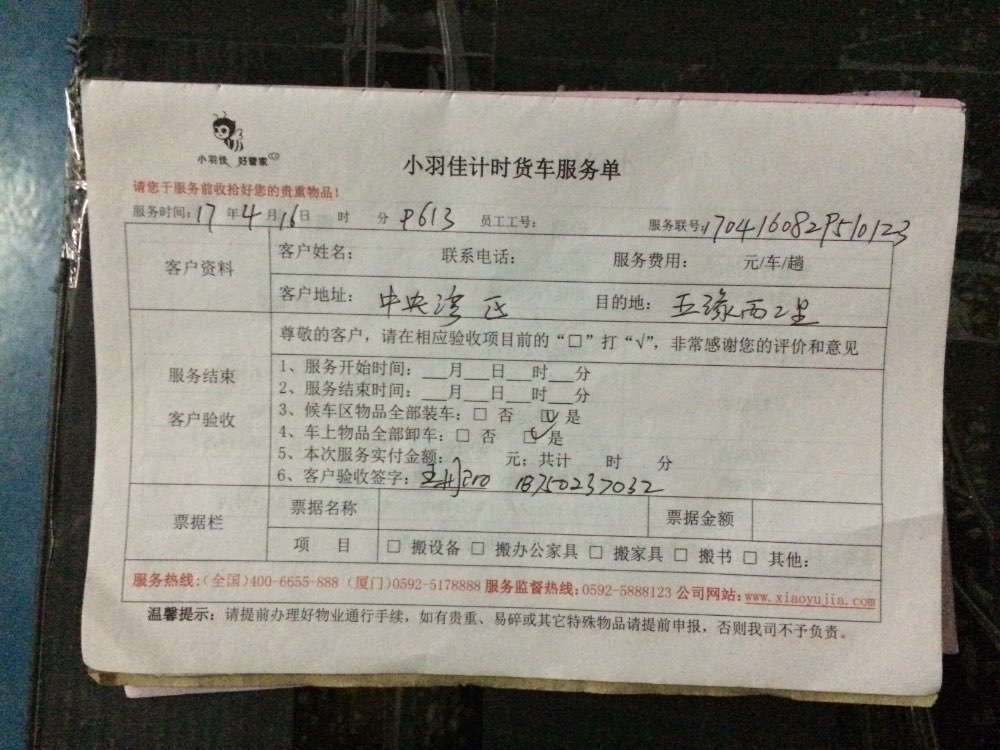 小羽佳 好管家
小羽佳计时货车服务单
请您于服务前收拾好您的贵重物品！
服务时间：17 年 4 月 16 日 时 分 P613 员工工号： 服务联号：1704160829510123
客户资料
客户姓名： 联系电话： 服务费用： 元/车/趟
客户地址：中央湾区 目的地：五缘西二里
服务结束
客户验收
尊敬的客户，请在相应验收项目前的“□”打“√”，非常感谢您的评价和意见
1、服务开始时间：___月___日___时___分
2、服务结束时间：___月___日___时___分
3、候车区物品全部装车：□ 否 ☑ 是
4、车上物品全部卸车：□ 否 ☑ 是
5、本次服务实付金额： 元；共计 时 分
6、客户验收签字： 18750237032
票据栏
票据名称 票据金额
项 目 □ 搬设备 □ 搬办公家具 □ 搬家具 □ 搬书 □ 其他：
服务热线：(全国)400-6655-888 (厦门)0592-5178888 服务监督热线：0592-5888123 公司网站：www.xiaoyujia.com
温馨提示：请提前办理好物业通行手续，如有贵重、易碎或其它特殊物品请提前申报，否则我司不予负责。